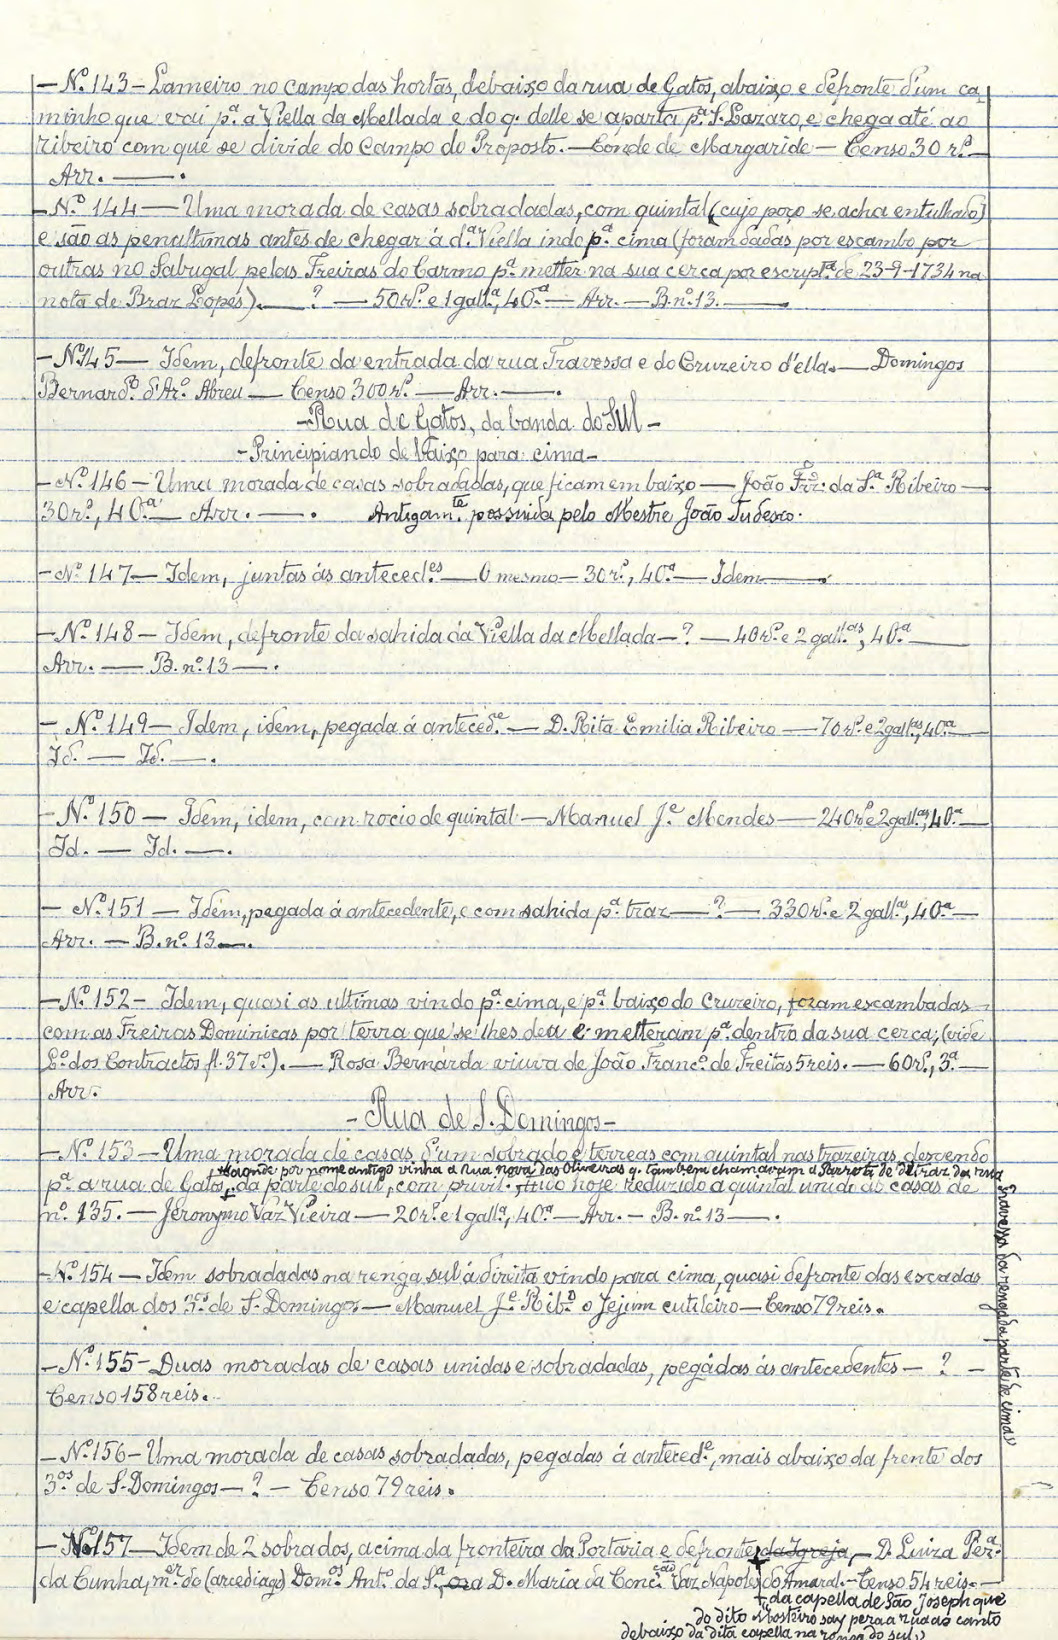 — Nº 143 — Lameiro no campo das hortas, debaixo da rua de Gatos, abaixo e defronte d'um ca-
minho que vai pª a Viella da Mellada e do q. delle se aparta pª S. Lazaro, e chega até ao
ribeiro com que se divide do Campo do Proposto. — Conde de Margaride — Censo 30 rs. —
Arr. —— .
— Nº 144 — Uma morada de casas sobradadas, com quintal (cujo poço se acha entulhado)
e são as penultimas antes de chegar á dª Viella indo pª cima (foram dadas por escambo por
outras no Sabugal, pelas Freiras do Carmo pª metter na sua cerca por escriptª de 23-9-1734 na
nota de Braz Lopes). —— ? — 50 rs. e 1 gallª, 40ª — Arr. — B. nº 13. ——
— Nº 145 — Idem, defronte da entrada da rua Travessa e do Cruzeiro d'ella. — Domingos
Bernardº d'Arº Abreu — Censo 300 rs. — Arr. —— .
— Rua de Gatos, da banda do Sul —
— Principiando de baixo para cima —
— Nº 146 — Uma morada de casas sobradadas, que ficam em baixo — João Frz. da Sª Ribeiro —
30 rs., 40ª — Arr. —— . Antigamte possuida pelo Mestre João Tudesco.
— Nº 147 — Idem, juntas ás anteced.es — O mesmo — 30 rs., 40ª — Idem —— .
— Nº 148 — Idem, defronte da sahida da Viella da Mellada — ? — 40 rs. e 2 gall.as, 40ª ——
Arr. — B. nº 13 — .
— Nº 149 — Idem, idem, pegada á anteced.e — D. Rita Emilia Ribeiro — 70 rs. e 2 gall.as, 40ª —
Id. — Id. — .
— Nº 150 — Idem, idem, com rocio de quintal — Manuel J.e Mendes — 240 rs. e 2 gall.as, 40ª —
Id. — Id. — .
— Nº 151 — Idem, pegada á antecedente, e com sahida pª traz — ? — 330 rs. e 2 gall.as, 40ª —
Arr. — B. nº 13 — .
— Nº 152 — Idem, quasi as ultimas vindo pª cima, e pª baixo do Cruzeiro, foram escambadas
com as Freiras Dominicas por terra que se lhes deu e metteram pª dentro da sua cerca; (vide
Lº dos Contractos fl. 37 vº). — Rosa Bernarda viuva de João Francº de Freitas 5 reis. — 60 rs., 3ª —
Arr.
— Rua de S. Domingos —
— Nº 153 — Uma morada de casas d'um sobrado e terreas com quintal nas trazeiras, descendo
+ aonde por nome antigo vinha a Rua nova das Oliveiras q. tambem chamaram a Parrota de detraz da rua
travessa da renga da parte de cima
pª a rua de Gatos, + da parte do sul, com hoje reduzido a quintal unido ás casas de
nº 135. — Jeronymo Vaz Vieira — 20 rs. e 1 gallª, 40ª — Arr. — B. nº 13 — .
— Nº 154 — Idem sobradadas na renga sul á direita vindo para cima, quasi defronte das escadas
e capella dos 3os de S. Domingos — Manuel J.e Rib.º o Jejum cutileiro — Censo 79 reis.
— Nº 155 — Duas moradas de casas unidas e sobradadas, pegadas ás antecedentes — ? —
Censo 158 reis.
— Nº 156 — Uma morada de casas sobradadas, pegadas á anteced.e, mais abaixo da frente dos
3os de S. Domingos — ? — Censo 79 reis.
— Nº 157 — Idem de 2 sobrados, acima da fronteira da Portaria e defronte + da Igreja, — D. Luiza Per.ª
da Cunha, m.er do (arcediago) Dom.os Ant.º da Sª, ora D. Maria da Conc.cão Vaz Napoles do Amaral. — Censo 54 reis. —
+ da capella de São Joseph que
do dito Mosteiro say pera a rua ao canto
debaixo da dita capella na renga do sul